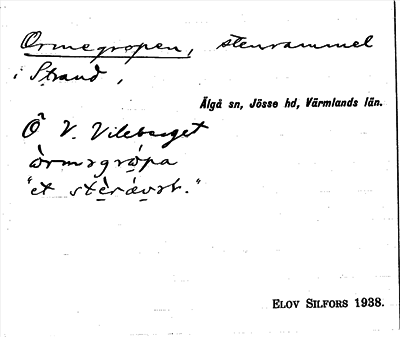 Ormegropen, stenrammel
i Strand,
Älgå sn, Jösse hd, Värmlands län.
Ö V. Vileberget
òrmǝgrò̱pa
"et
ELOV SILFORS 1938.